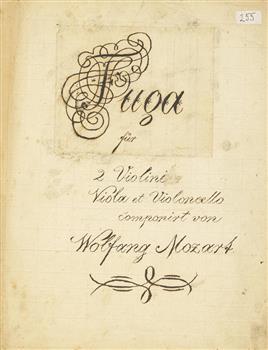 255
Fuga
für
2 Violini
Viola et Violoncello
componirt von
Wolfang Mozart